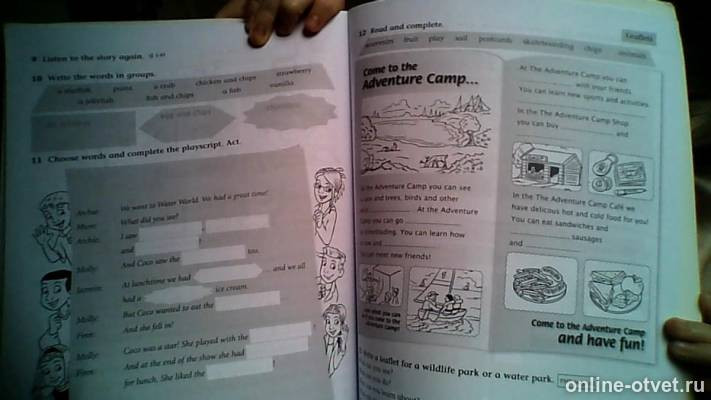 9 Listen to the story again.
10 Write the words in groups.
a starfish pasta a crab chicken and chips strawberry
a jellyfish fish and chips a fish vanilla
egg and chips
11 Choose words and complete the playscript. Act.
Archie: We went to Water World. We had a great time!
Mum: What did you see?
Archie: I saw
and
Molly: And Coco saw the too.
At lunchtime we had and we all
had a ice cream.
Molly: But Coco wanted to eat the
Finn: And she fell in!
Molly: Coco was a star! She played with the
Finn: And at the end of the show she had
for lunch. She liked the
12 Read and complete.
Leaflets
souvenirs fruit play sail postcards skateboarding chips animals
Come to the
Adventure Camp...
At the Adventure Camp you can see
and trees, birds and other
At the Adventure
Camp you can go
You can learn how
meet new friends!
At The Adventure Camp you can
with your friends.
You can learn new sports and activities.
In the The Adventure Camp Shop
you can buy and
In the The Adventure Camp Café we
have delicious hot and cold food for you!
You can eat sandwiches and
sausages
and
Come to the Adventure Camp
and have fun!
Write a leaflet for a wildlife park or a water park.
online-otvet.ru